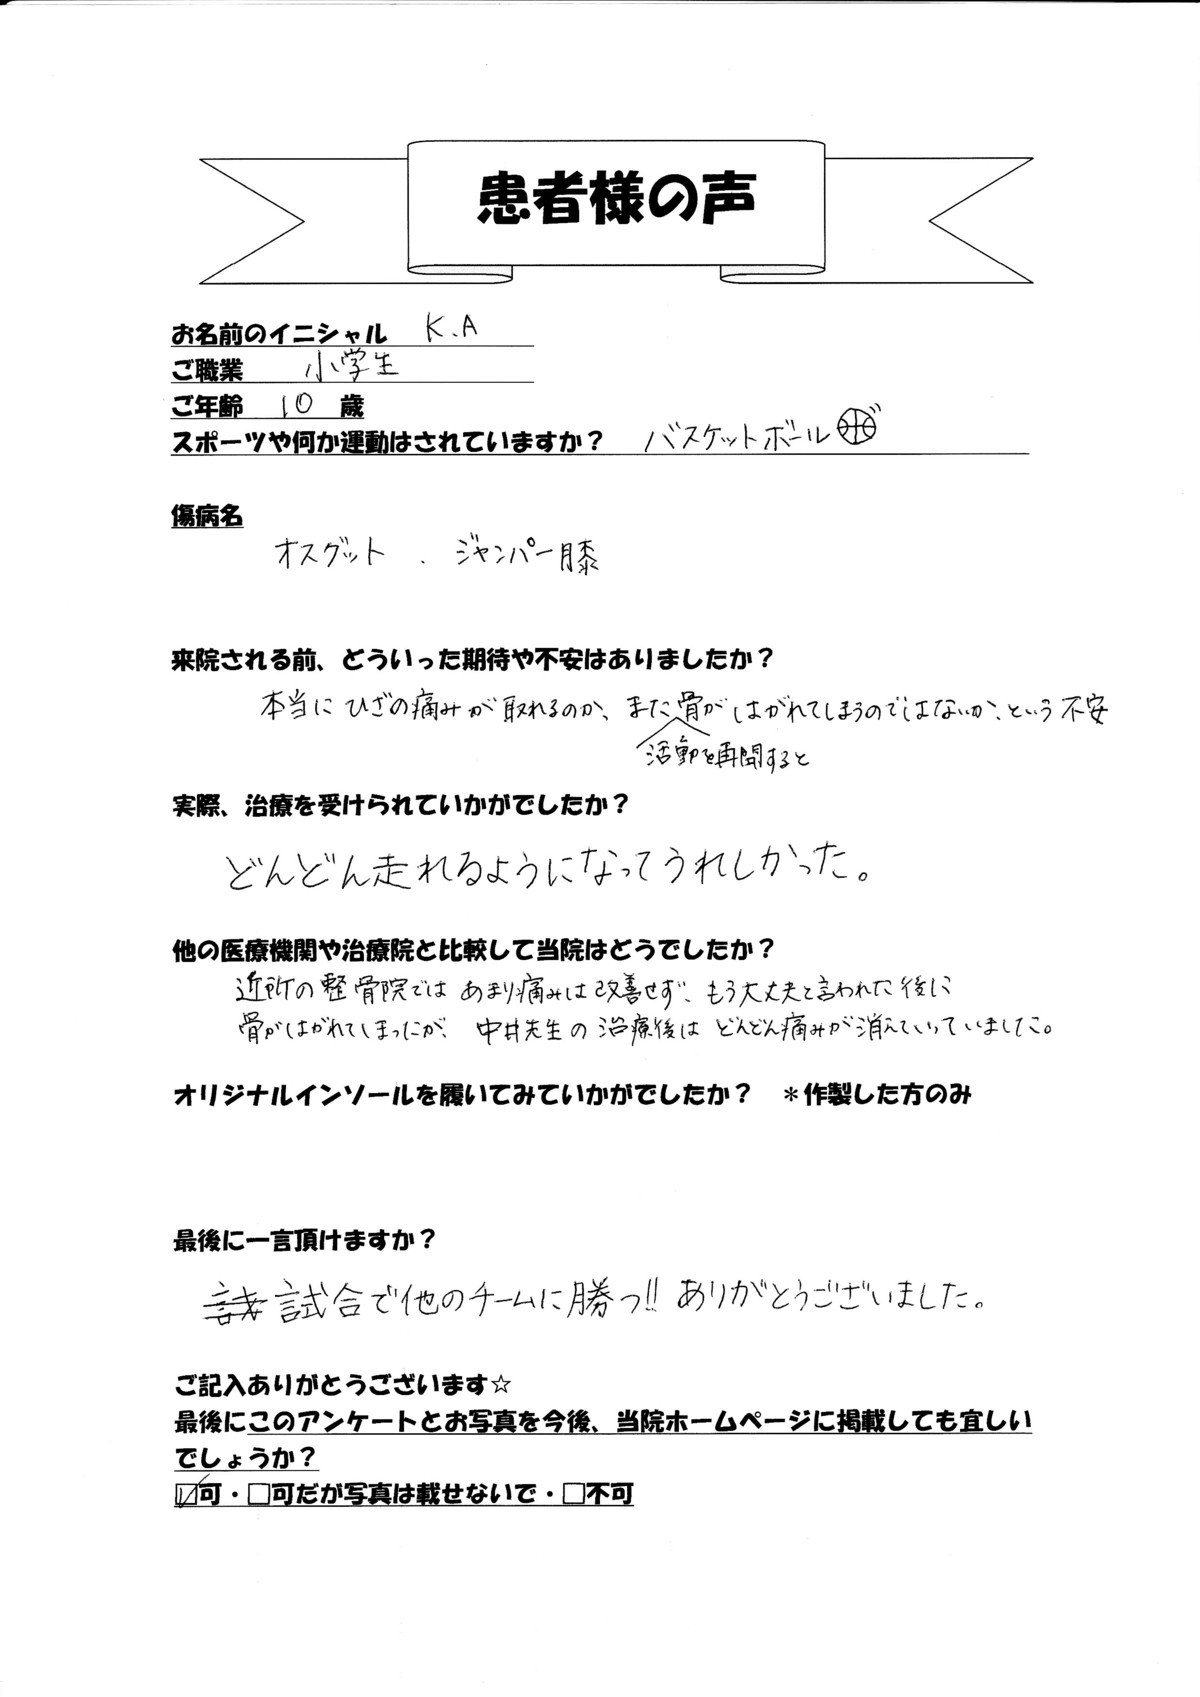 患者様の声
お名前のイニシャル K.A
ご職業 小学生
ご年齢 10 歳
スポーツや何か運動はされていますか? バスケットボール
傷病名
オスグット . ジャンパー膝
来院される前、どういった期待や不安はありましたか?
本当に ひざの痛みが 取れるのか、また骨が はがれてしまうのではないか、という不安
活動を再開すると
実際、治療を受けられていかがでしたか?
どんどん走れるようになってうれしかった。
他の医療機関や治療院と比較して当院はどうでしたか?
近所の整骨院では あまり痛みは改善せず、もう大丈夫と言われた後に
骨がはがれてしまったが、中井先生の治療後は どんどん痛みが消えていっていました。
オリジナルインソールを履いてみていかがでしたか? *作製した方のみ
最後に一言頂けますか?
試合で他のチームに勝つ!! ありがとうございました。
ご記入ありがとうございます☆
最後にこのアンケートとお写真を今後、当院ホームページに掲載しても宜しい
でしょうか?
☑可・□可だが写真は載せないで・□不可